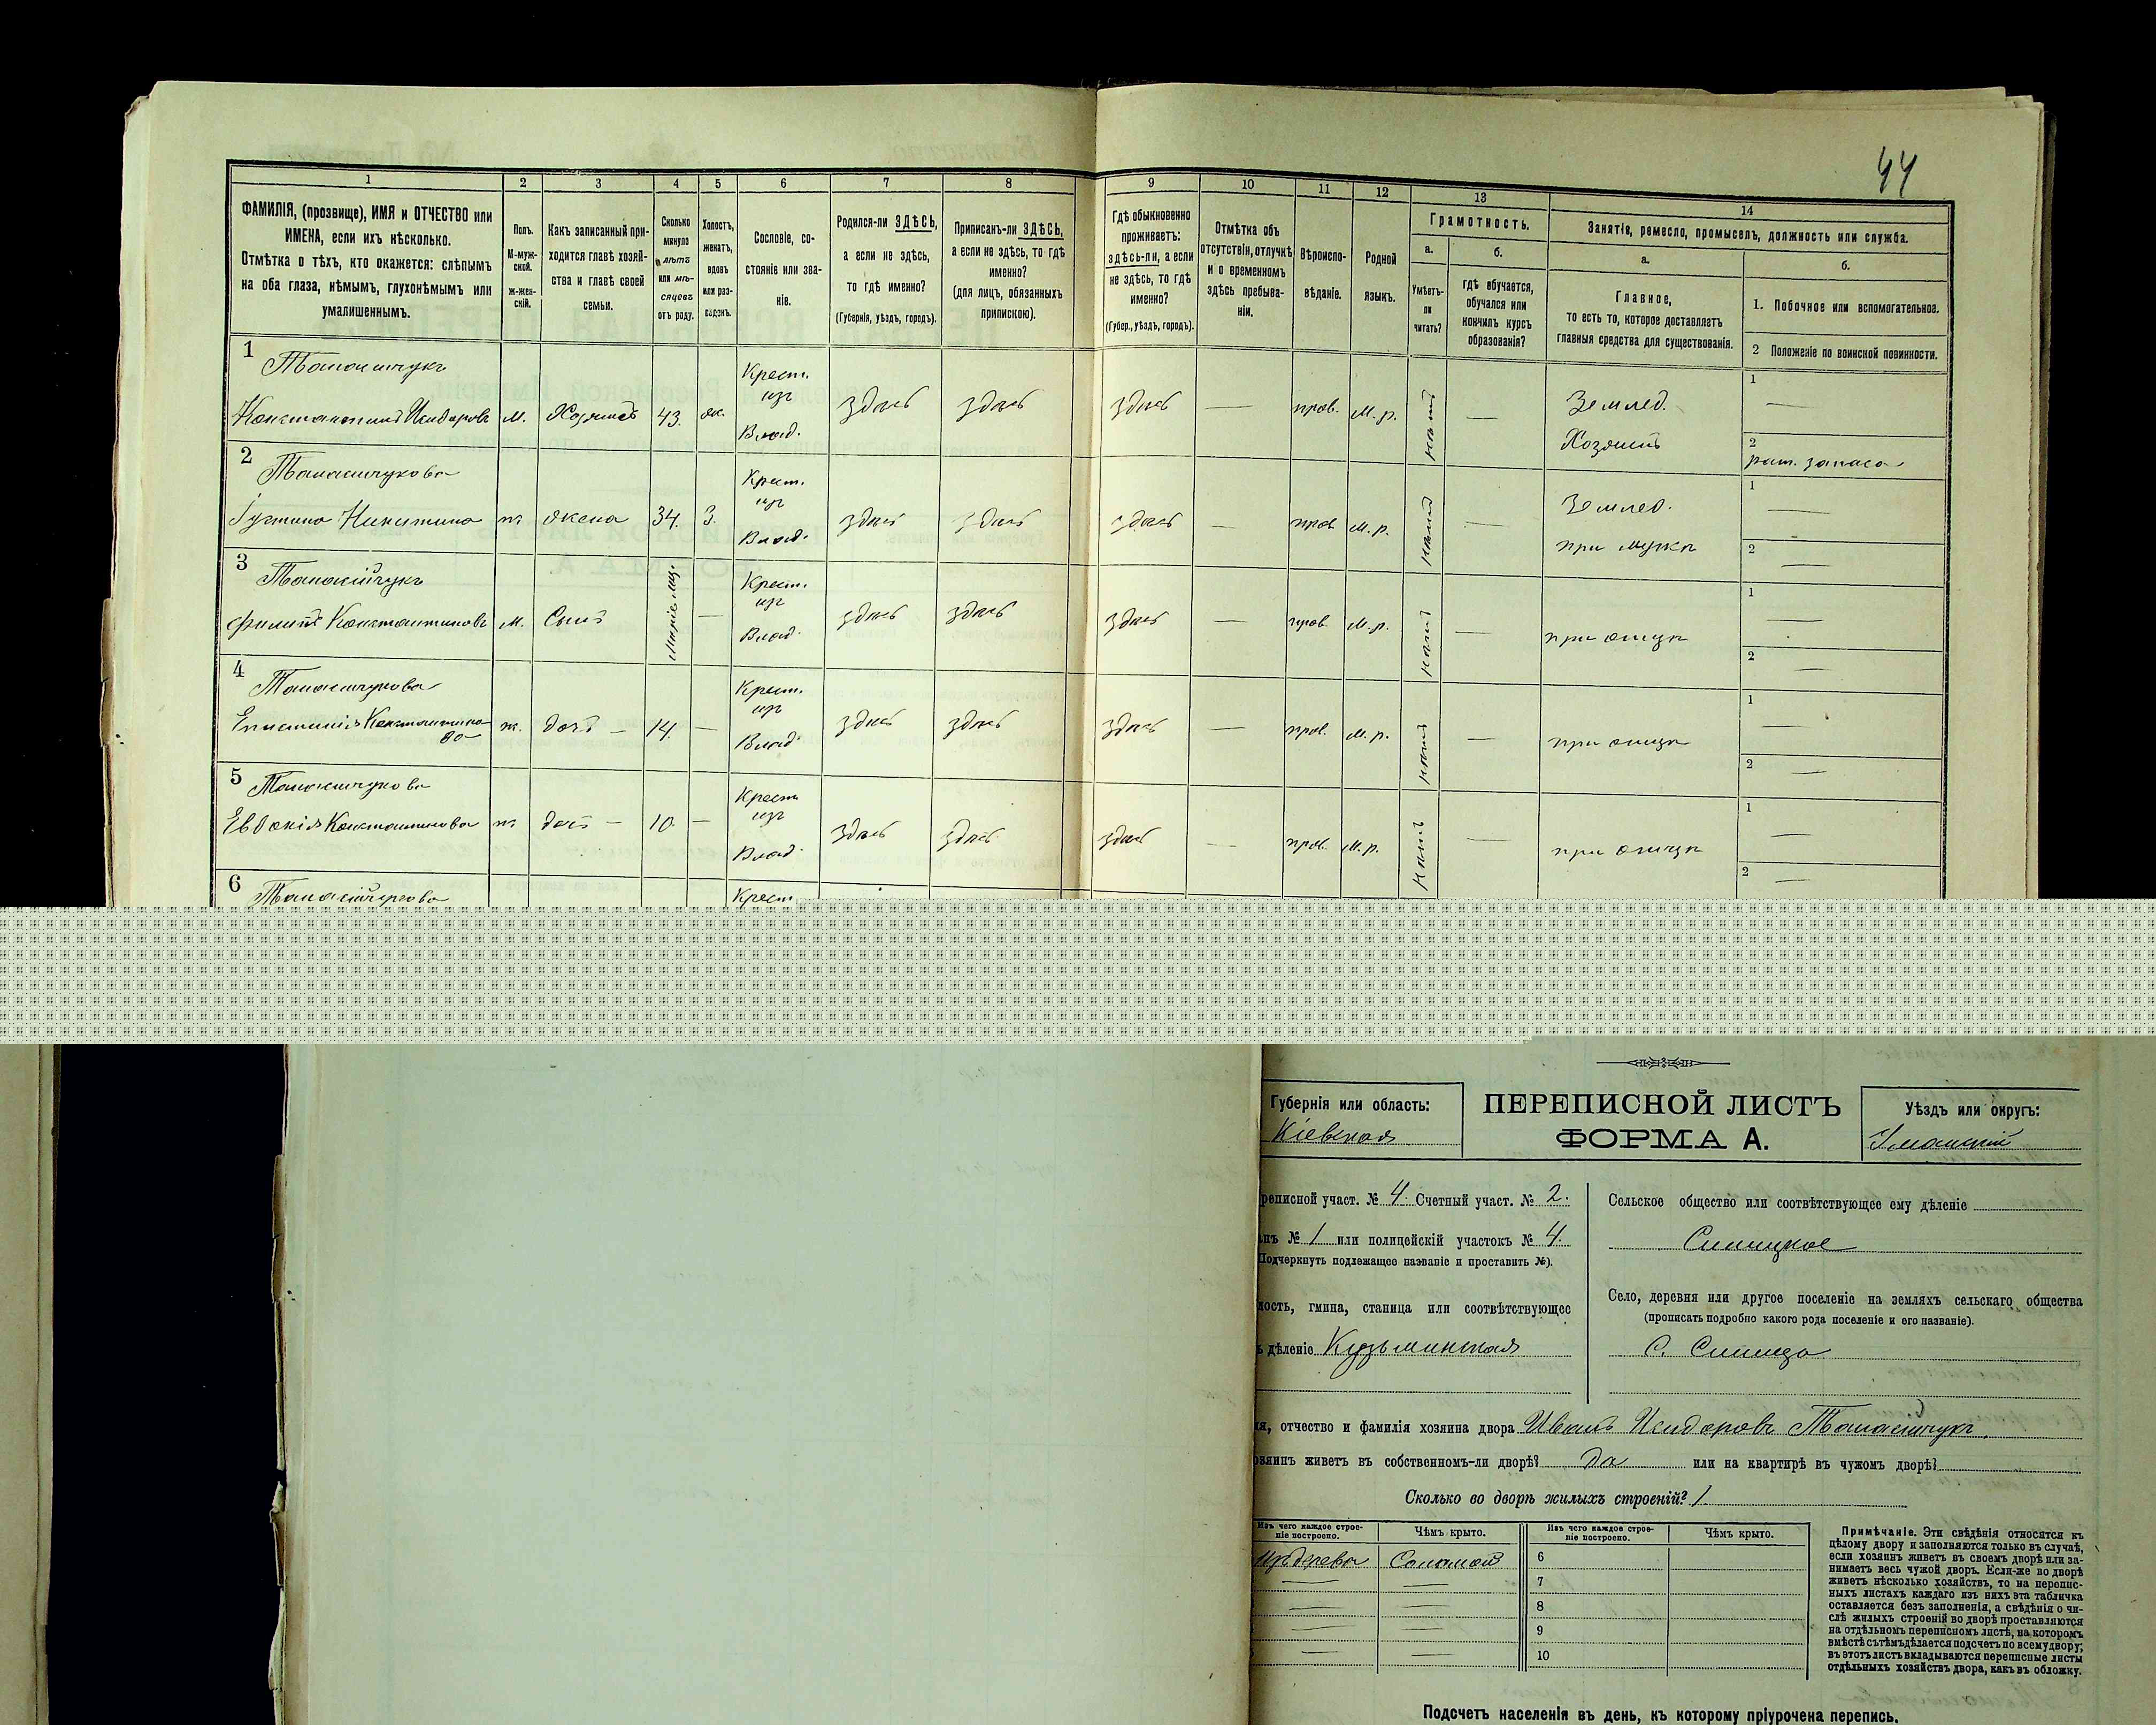 44
1 2 3 4 5 6 7 8 9 10 11 12 13 14
ФАМИЛІЯ, (прозвище), ИМЯ и ОТЧЕСТВО или
ИМЕНА, если ихъ нѣсколько.
Отмѣтка о тѣхъ, кто окажется: слѣпымъ
на оба глаза, нѣмымъ, глухонѣмымъ или
умалишеннымъ.
Полъ.
М-муж-
ской.
ж-жен-
скій.
Какъ записанный при-
ходится главѣ хозяй-
ства и главѣ своей
семьи.
Сколько
минуло
лѣтъ
или мѣ-
сяцевъ
отъ роду.
Холостъ,
женатъ,
вдовъ
или раз-
веденъ.
Сословіе, со-
стояніе или зва-
ніе.
Родился-ли ЗДѢСЬ,
а если не здѣсь,
то гдѣ именно?
(Губернія, уѣздъ, городъ).
Приписанъ-ли ЗДѢСЬ,
а если не здѣсь, то гдѣ
именно?
(для лицъ, обязанныхъ
припискою).
Гдѣ обыкновенно
проживаетъ:
здѣсь-ли, а если
не здѣсь, то гдѣ
именно?
(Губер., уѣздъ, городъ).
Отмѣтка объ
отсутствіи, отлучкѣ
и о временномъ
здѣсь пребыва-
ніи.
Вѣроиспо-
вѣданіе.
Родной
языкъ.
Грамотность.
а.
Умѣетъ-
ли
читать?
б.
гдѣ обучается,
обучался или
кончилъ курсъ
образованія?
Занятія, ремесло, промыселъ, должность или служба.
а.
Главное,
то есть то, которое доставляетъ
главныя средства для существованія.
б.
1. Побочное или вспомогательное.
2 Положеніе по воинской повинности.
1 Танасійчукъ
Константинъ Исидоровъ м. Хозяинъ 43. ж. Крест. изъ Влад. здѣсь здѣсь здѣсь — прав. м. р. нѣтъ — Землед. Хозяинъ 1 — 2 рат. запаса
2 Танасійчукова
Іустина Никитина ж. жена 34. з. Крест. изъ Влад. здѣсь здѣсь здѣсь — прав. м. р. нѣтъ — Землед. при мужѣ 1 — 2 —
3 Танасійчукъ
Филипъ Константиновъ м. Сынъ — Крест. изъ Влад. здѣсь здѣсь здѣсь — прав. м. р. нѣтъ — при отцѣ 1 — 2 —
4 Танасійчукова
Константинова ж. дочь — 14. — Крест. изъ Влад. здѣсь здѣсь здѣсь — прав. м. р. нѣтъ — при отцѣ 1 — 2 —
5 Танасійчукова
Евдокія Константинова ж. дочь — 10. — Крест. изъ Влад. здѣсь здѣсь здѣсь — прав. м. р. нѣтъ — при отцѣ 1 — 2 —
6 Танасійчукова Крест.
Губернія или область:
Кіевская
ПЕРЕПИСНОЙ ЛИСТЪ
ФОРМА А.
Уѣздъ или округъ:
Уманскій
реписной участ. № 4. Счетный участ. № 2.
анъ № 1 или полицейскій участокъ № 4.
Подчеркнуть подлежащее названіе и проставить №).
лость, гмина, станица или соотвѣтствующее
ъ дѣленіе Кузьминская
Сельское общество или соотвѣтствующее ему дѣленіе
Синицкое
Село, деревня или другое поселеніе на земляхъ сельскаго общества
(прописать подробно какого рода поселеніе и его названіе).
С. Синица
ія, отчество и фамилія хозяина двора Иванъ Исидоровъ Танасійчукъ.
озяинъ живетъ въ собственномъ-ли дворѣ? да или на квартирѣ въ чужомъ дворѣ?
Сколько во дворѣ жилыхъ строеній? 1.
Изъ чего каждое строе-
ніе построено.
Чѣмъ крыто.
Изъ чего каждое строе-
ніе построено.
Чѣмъ крыто.
Изъ дерева Соломой 6
— — 7
— — 8
— — 9
— — 10
Примѣчаніе. Эти свѣдѣнія относятся къ
цѣлому двору и заполняются только въ случаѣ,
если хозяинъ живетъ въ своемъ дворѣ или за-
нимаетъ весь чужой дворъ. Если-же во дворѣ
живетъ нѣсколько хозяйствъ, то на перепис-
ныхъ листахъ каждаго изъ нихъ эта табличка
оставляется безъ заполненія, а свѣдѣнія о чи-
слѣ жилыхъ строеній во дворѣ проставляются
на отдѣльномъ переписномъ листѣ, на которомъ
вмѣстѣ съ тѣмъ дѣлается подсчетъ по всему двору;
въ этотъ листъ вкладываются переписные листы
отдѣльныхъ хозяйствъ двора, какъ въ обложку.
Подсчетъ населенія въ день, къ которому пріурочена перепись.